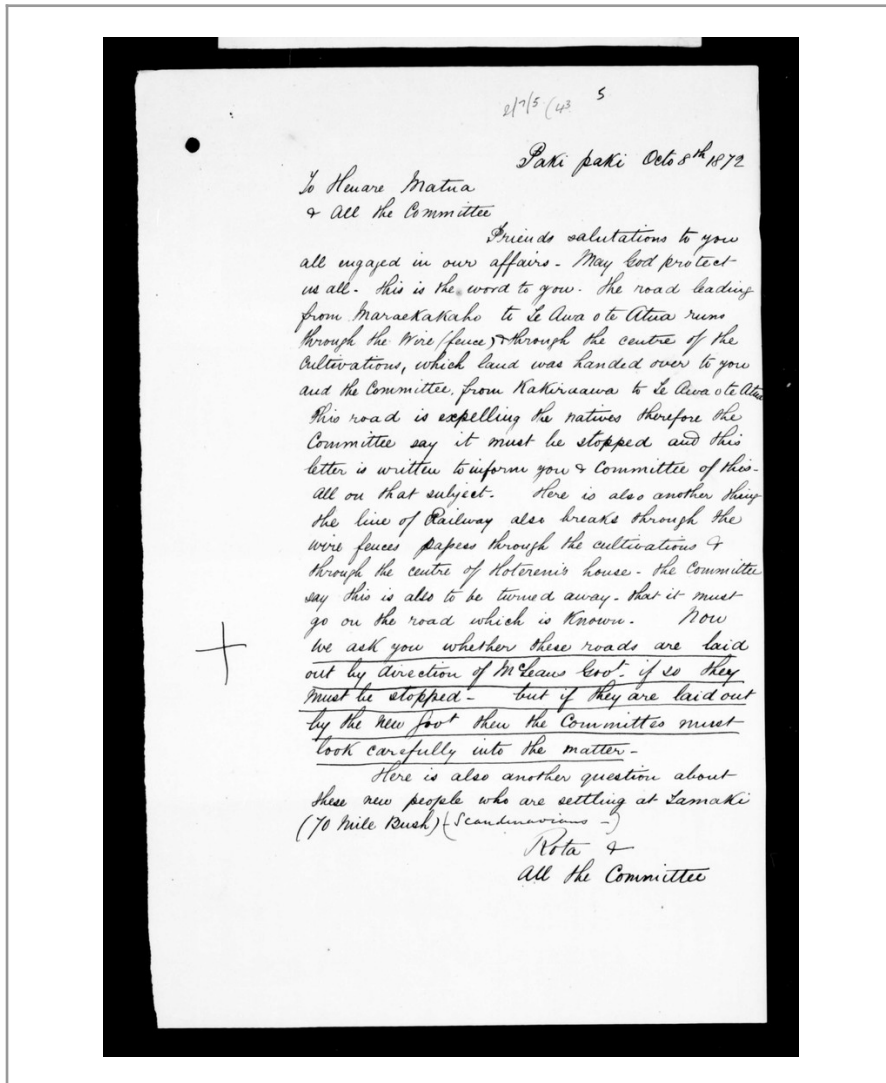 5
Paki paki Octo 8th 1872
To Henare Matua
& All the Committee
Friends salutations to you
all engaged in our affairs - May God protect
us all - this is the word to you - the road leading
from Maraekakaho to Te Awa o te Atua runs
through the Wire (fence) & through the centre of the
Cultivations, which land was handed over to you
and the Committee, from Kakiraawa to Te Awa o te Atua
This road is expelling the natives therefore the
Committee say it must be stopped and this
letter is written to inform you & Committee of this -
All on that subject - Here is also another thing
the line of Railway also breaks through the
wire fences passess through the cultivations &
through the centre of Hoterenis house - the Committee
say this is also to be turned away - that it must
go on the road which is known - Now
we ask you whether these roads are laid
out by direction of McLeans Govt - if so they
must be stopped - but if they are laid out
by the new Govt then the Committee must
look carefully into the matter -
Here is also another question about
these new people who are settling at Tamaki
(70 Mile Bush) (Scandinavians -)
Rota &
All the Committee